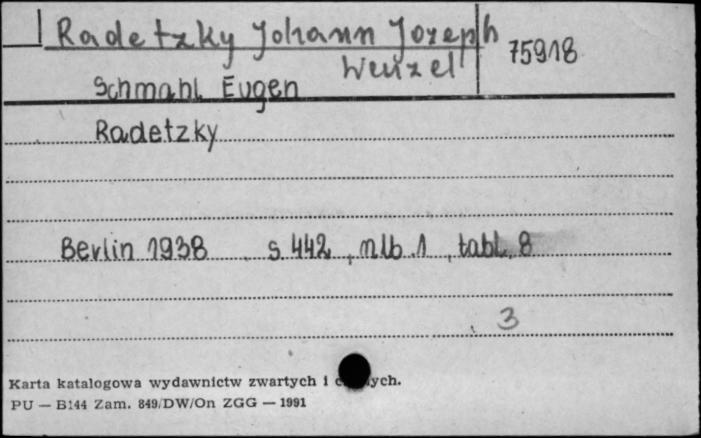 Radetzky Johann Jozeph
Wenzel
75918
Schmahl Eugen
Radetzky
Berlin 1938 s 442, nlb. 1, tabl. 8
3
Karta katalogowa wydawnictw zwartych i
PU — B144 Zam. 849/DW/On ZGG — 1991